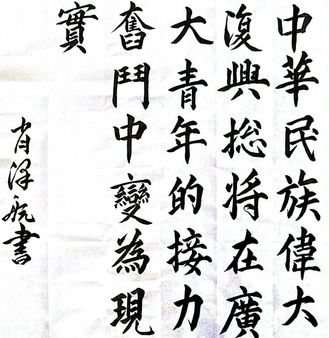 中華民族偉大
復興挩将在廣
大青年的接力
奮鬥中變為現
實
肖泽航書